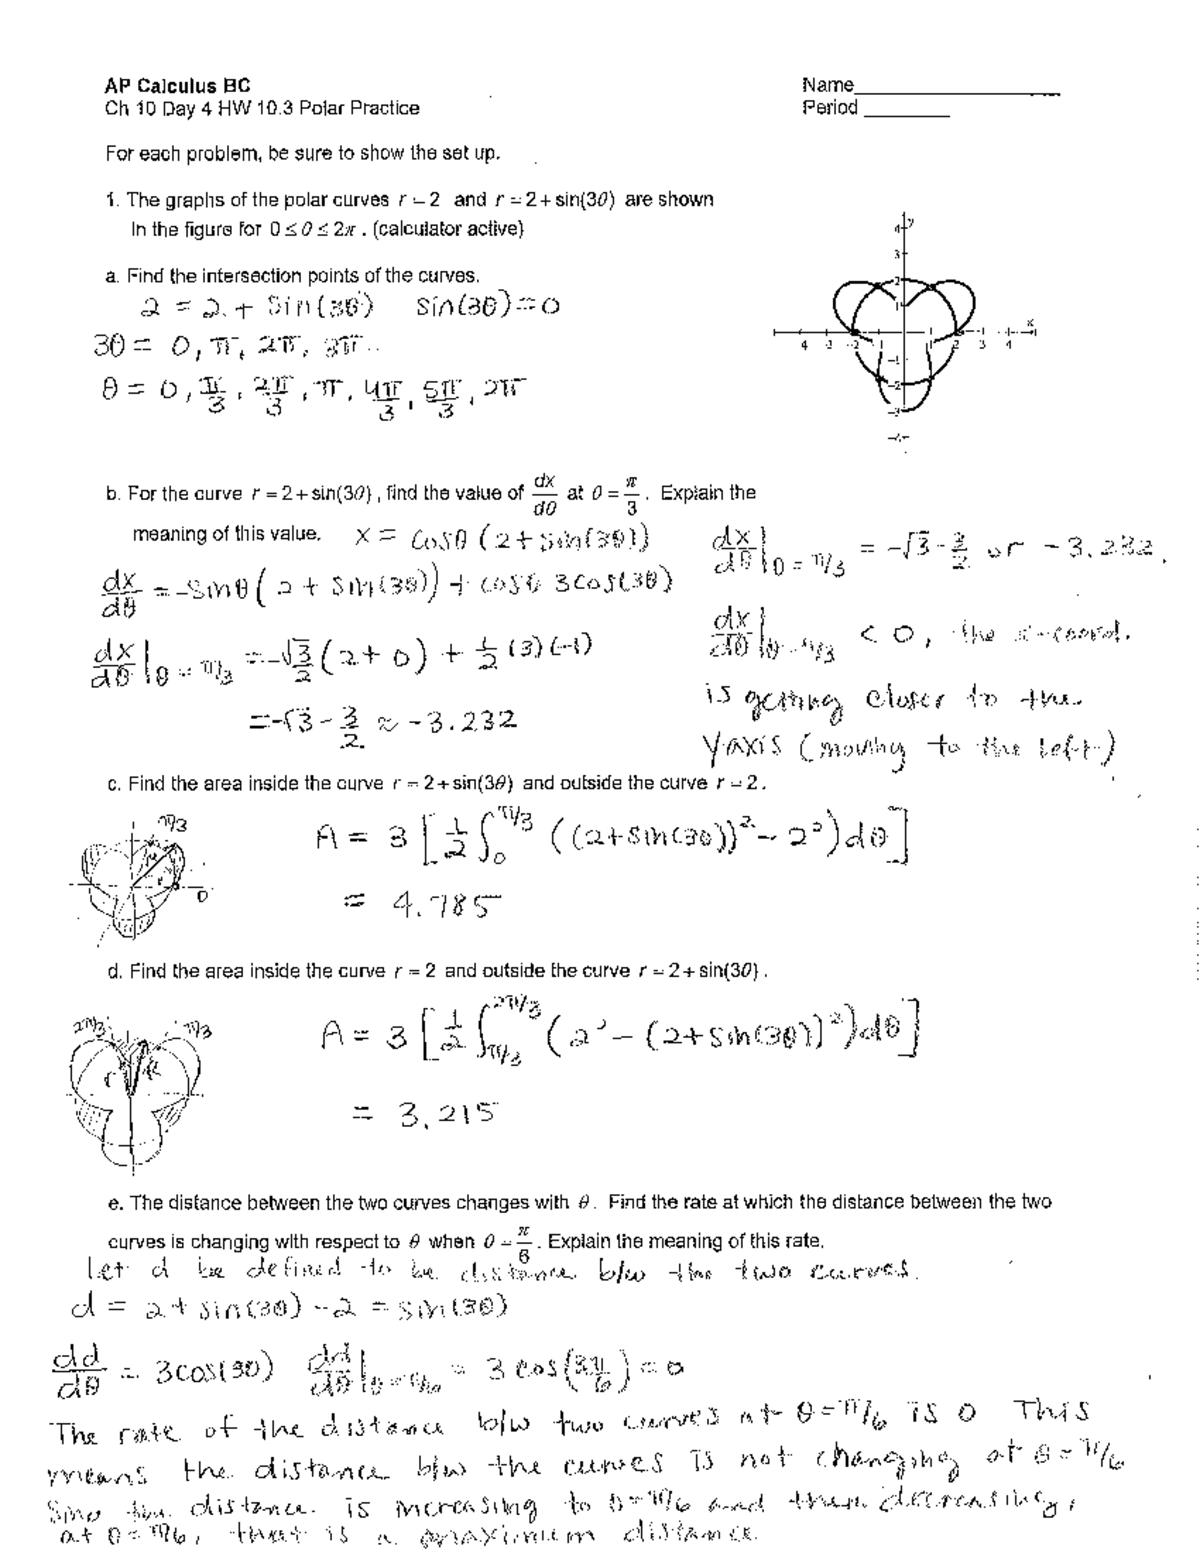 AP Calculus BC
Name
Ch 10 Day 4 HW 10.3 Polar Practice
Period
For each problem, be sure to show the set up.
1. The graphs of the polar curves r = 2 and r = 2 + sin(3θ) are shown
In the figure for 0 ≤ θ ≤ 2π . (calculator active)
a. Find the intersection points of the curves.
2 = 2 + sin(3θ) sin(3θ) = 0
3θ = 0, π, 2π, 3π..
θ = 0, π/3, 2π/3, π, 4π/3, 5π/3, 2π
b. For the curve r = 2 + sin(3θ), find the value of dx/dθ at θ = π/3. Explain the
meaning of this value. x = cosθ (2 + sin(3θ))
dx/dθ = -sinθ(2 + sin(3θ)) + cosθ 3cos(3θ)
dx/dθ|θ = π/3 = -√3/2 (2 + 0) + 1/2 (3)(-1)
= -√3 - 3/2 ≈ -3.232
dx/dθ|θ = π/3 = -√3 - 3/2 or -3.232.
dx/dθ|θ = π/3 < 0, the x-coord.
is getting closer to the
y-axis (moving to the left)
c. Find the area inside the curve r = 2 + sin(3θ) and outside the curve r = 2.
π/3
0
A = 3 [1/2 ∫₀^π/3 ((2+sin(3θ))² - 2²)dθ]
= 4.785
d. Find the area inside the curve r = 2 and outside the curve r = 2 + sin(3θ).
2π/3 π/3
r R
A = 3 [1/2 ∫π/3^2π/3 (2² - (2+sin(3θ))²)dθ]
= 3.215
e. The distance between the two curves changes with θ. Find the rate at which the distance between the two
curves is changing with respect to θ when θ = π/6. Explain the meaning of this rate.
Let d be defined to be distance b/w the two curves.
d = 2 + sin(3θ) - 2 = sin(3θ)
dd/dθ = 3cos(3θ) dd/dθ|θ = π/6 = 3 cos(3π/6) = 0
The rate of the distance b/w two curves at θ = π/6 is 0 This
means the distance b/w the curves is not changing at θ = π/6
the distance is increasing to θ = π/6 and then decreasing,
at θ = π/6, that is a maximum distance.